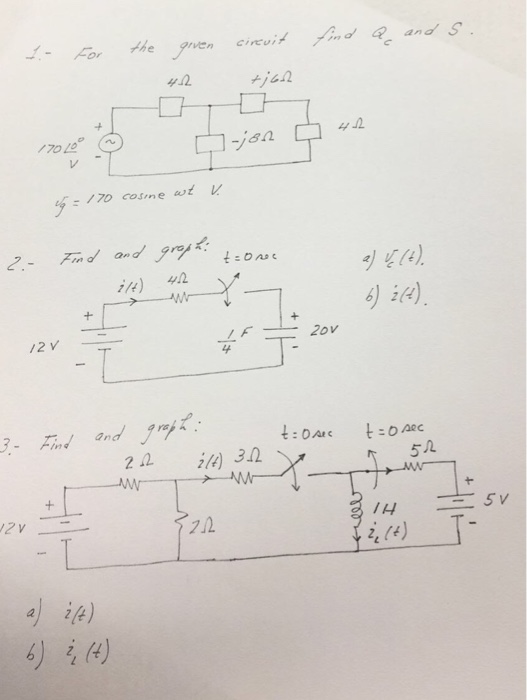 1.- For the given circuit find Qc and S.
4Ω +j6Ω
170∠0° V + - ~ -j8Ω 4Ω
= 170 cosine wt V.
2.- Find and graph: t=0 sec a) Vc(t).
i(t) 4Ω b) i(t).
12V + - 1/4 F + - 20V
3.- Find and graph: t=0 sec t=0 sec
2Ω i(t) 3Ω 5Ω
12V + - 2Ω 1H iL(t) + - 5V
a) i(t)
b) iL(t)